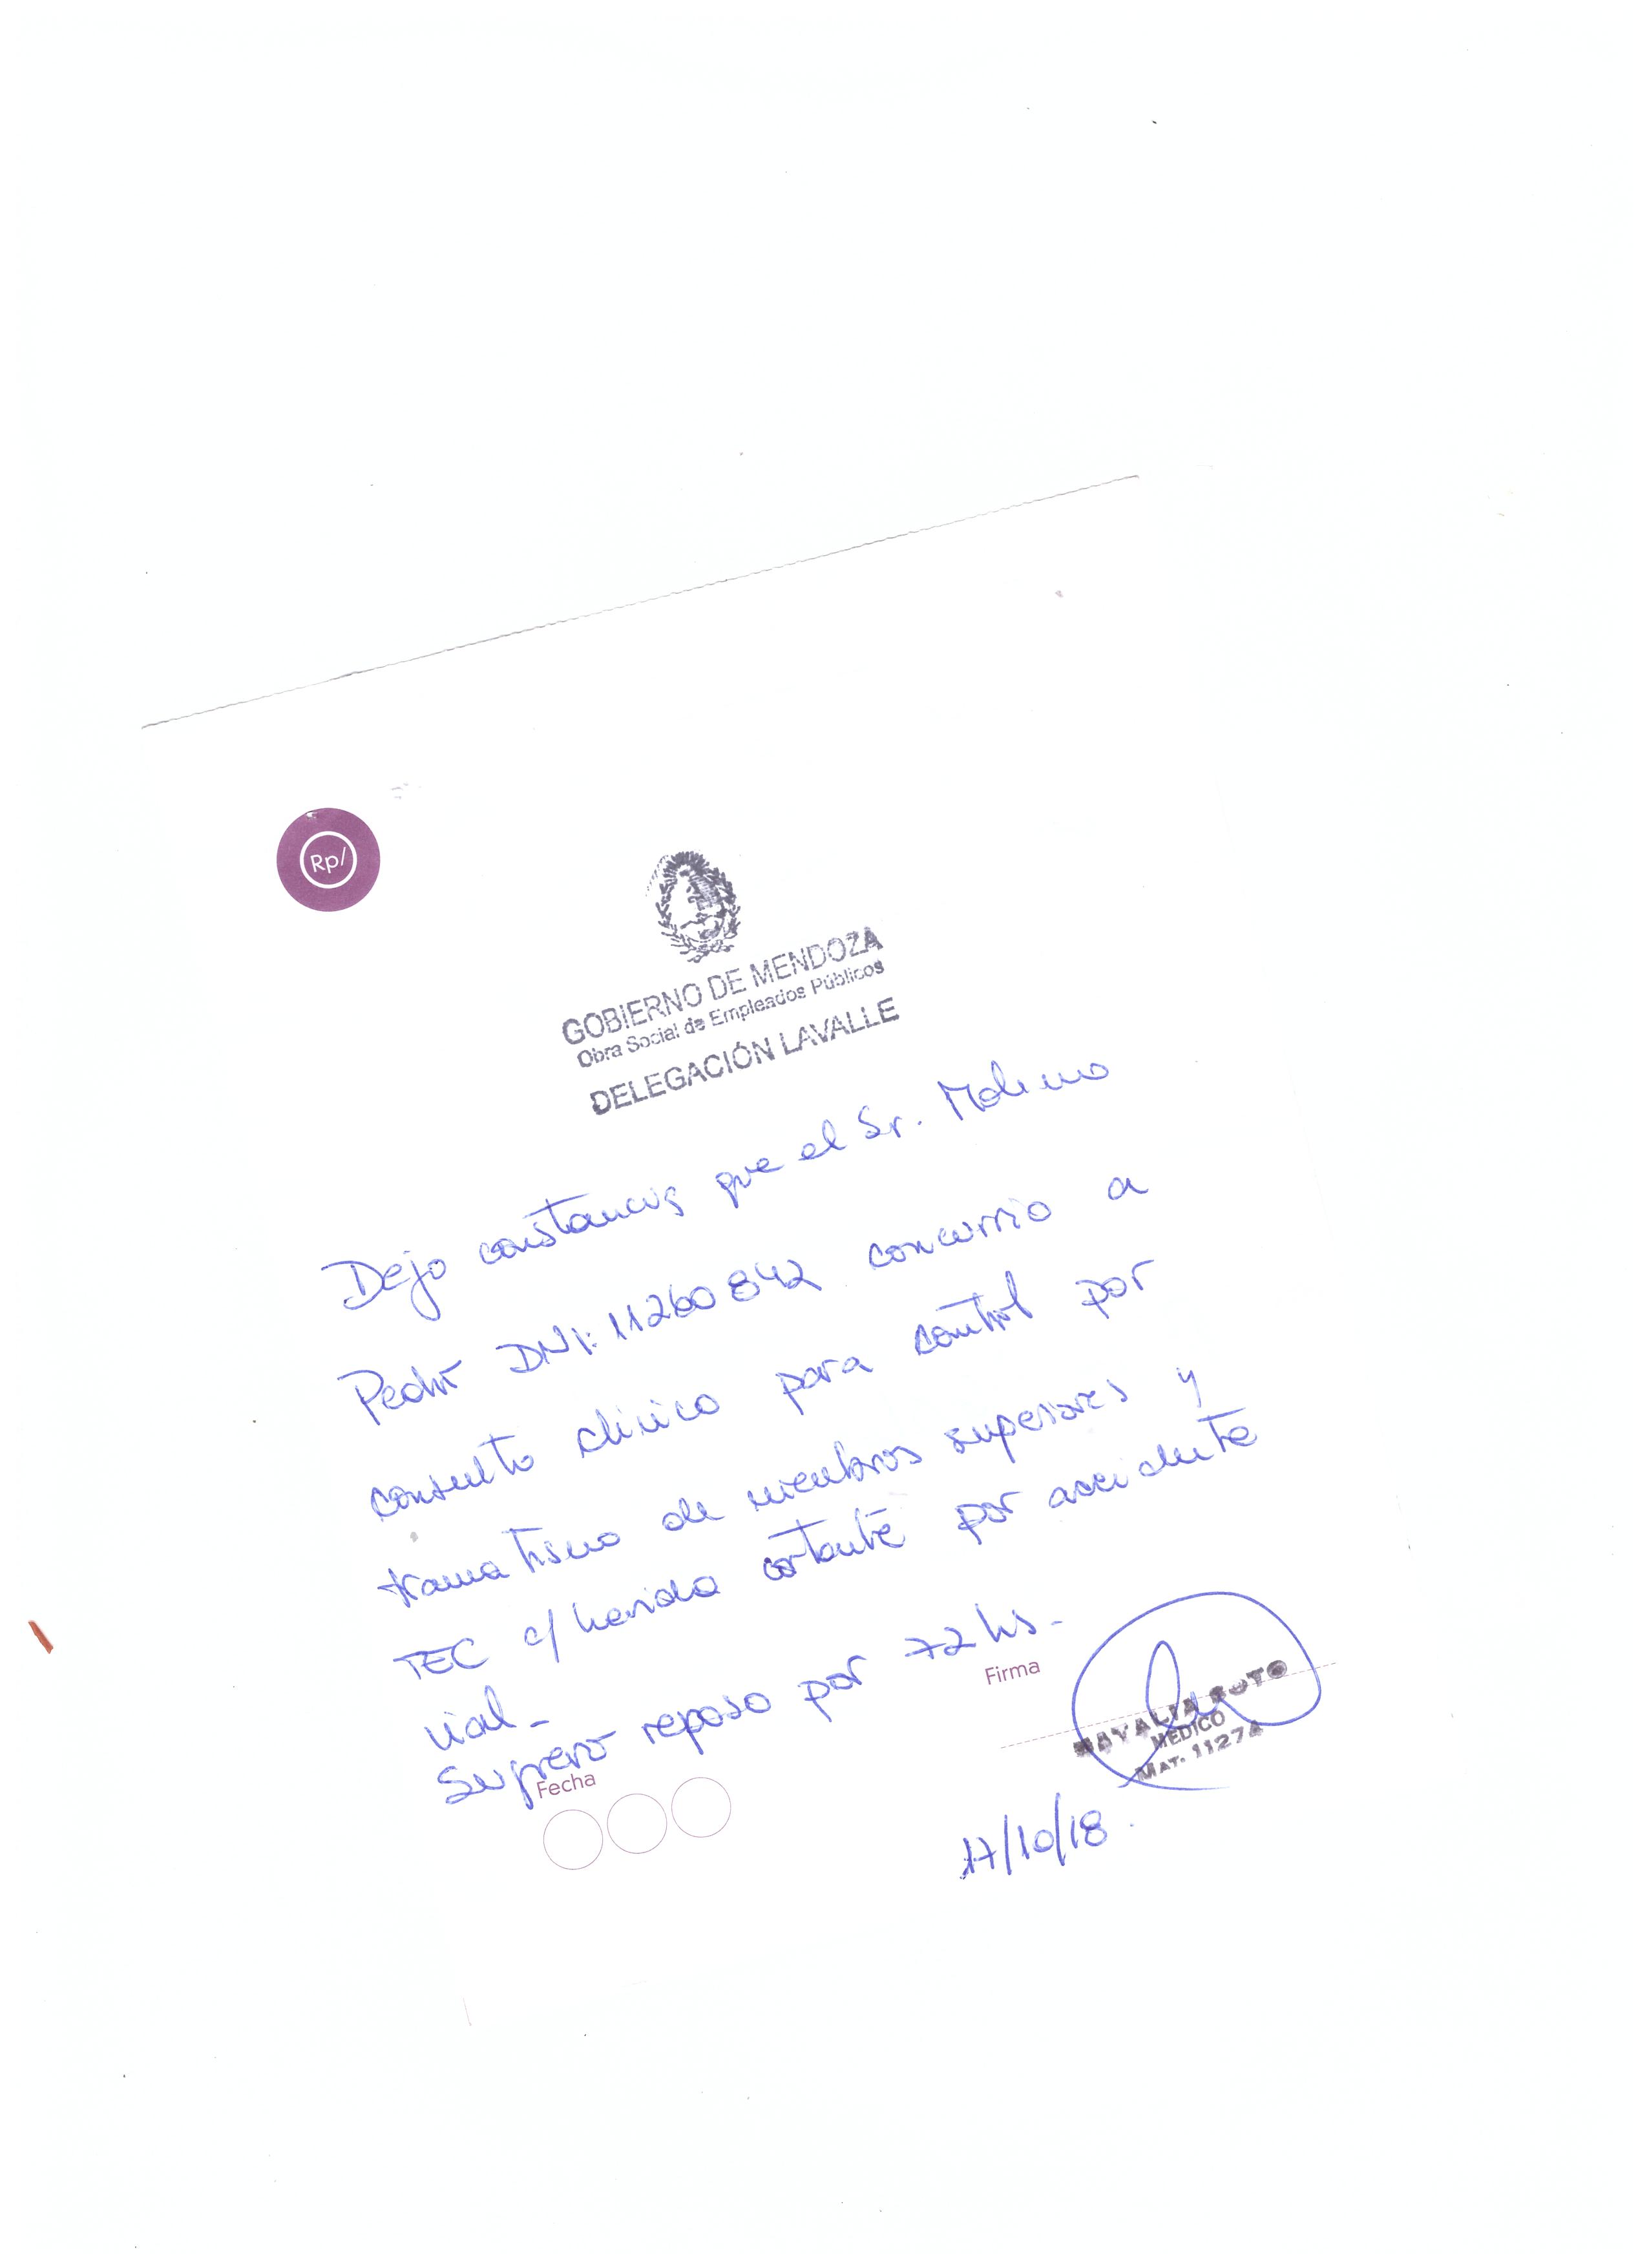 Rp/
GOBIERNO DE MENDOZA
Obra Social de Empleados Públicos
DELEGACIÓN LAVALLE
Dejo constancia que el Sr. Molina
Pedro DNI: 11260842 concurrio a
consulto clinico para control por
traumatismo de miembros superiores y
TEC c/ herida cortante por accidente
vial-
Sugiero reposo por 72 hs-
Firma
NATALIA SOTO
MEDICO
MAT. 11274
Fecha
17/10/18.